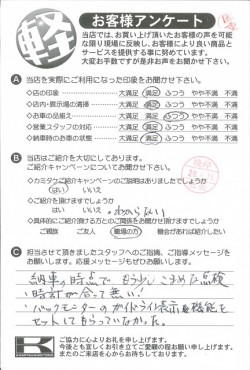 軽
お客様アンケート
当店では、お買い上げ頂いたお客様の声を可能
な限り現場に反映し、お客様により良い商品と
サービスを提供する事に努めています。
大変お手数ですが是非お声をお聞かせ下さい。
A 当店を実際にご利用になった印象をお聞かせ下さい。
◇店の印象 大満足 満足 ふつう やや不満 不満
◇店内・展示場の清掃 大満足 満足 ふつう やや不満 不満
◇お車の品揃え 大満足 満足 ふつう やや不満 不満
◇営業スタッフの対応 大満足 満足 ふつう やや不満 不満
◇納車時のお車の状態 大満足 満足 ふつう やや不満 不満
B 当店はご紹介を大切にしております。
ご紹介キャンペーンについてお聞かせ下さい。
◇カミタウご紹介キャンペーンのご説明はありましたでしょうか
はい いいえ
◇ご紹介を頂けますでしょうか
はい いいえ わからない
◇具体的にご紹介頂ける方とのご関係をお聞かせ頂けますでしょうか
ご親族 ご友人 職場の方 機会があれば紹介したい
C 担当させて頂きましたスタッフへのご指摘、ご指導メッセージを
お願いします。応援メッセージもぜひお願いします。
納車の時点で もう少しこまめな点検
時計が合って無い!
バックモニターのガイドライン表示の機能を
セットにもらっていなかった。
ご協力に心よりお礼を申し上げます。
今後とも宜しくお引き立てご愛顧の程お願い申し上げます。
またのご来店を心からお待ちしております。